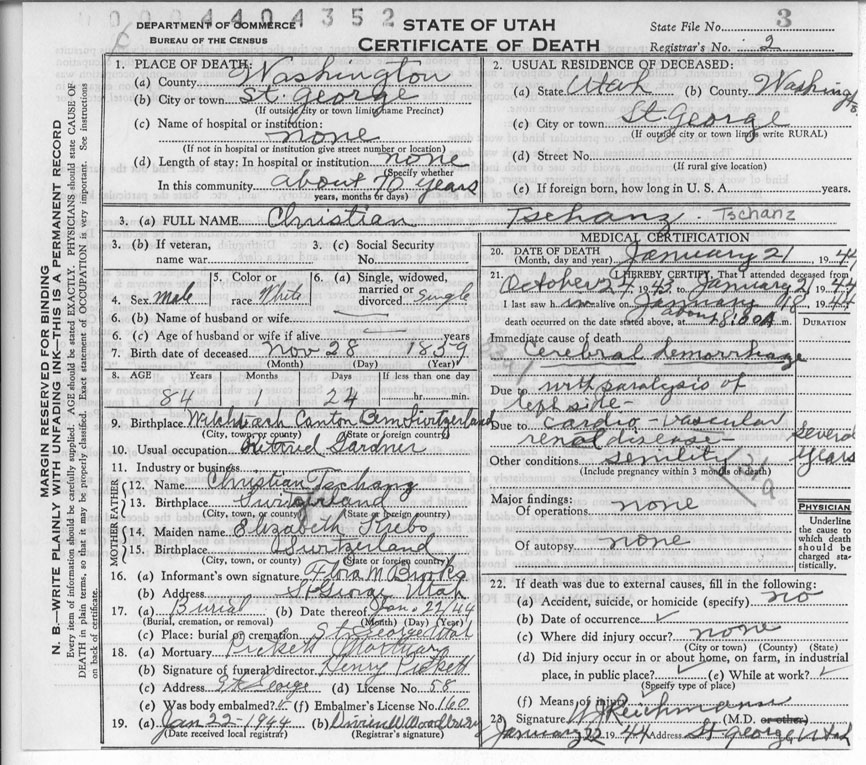 0004404352
DEPARTMENT OF COMMERCE
BUREAU OF THE CENSUS
STATE OF UTAH
CERTIFICATE OF DEATH
State File No. 3
Registrar's No. 2
MARGIN RESERVED FOR BINDING
N. B.—WRITE PLAINLY WITH UNFADING INK—THIS IS A PERMANENT RECORD
Every item of information should be carefully supplied. AGE should be stated EXACTLY. PHYSICIANS should state CAUSE OF
DEATH in plain terms, so that it may be properly classified. Exact statement of OCCUPATION is very important. See instructions
on back of certificate.
1. PLACE OF DEATH:
(a) County Washington
(b) City or town St. George
(If outside city or town limits name Precinct)
(c) Name of hospital or institution:
none
(If not in hospital or institution give street number or location)
(d) Length of stay: In hospital or institution none
(Specify whether
In this community about 70 years
years, months or days)
2. USUAL RESIDENCE OF DECEASED:
(a) State Utah (b) County Washing
(c) City or town St. George
(If outside city or town limits write RURAL)
(d) Street No.
(If rural give location)
(e) If foreign born, how long in U. S. A. years.
3. (a) FULL NAME Christian Tschanz Tschanz
3. (b) If veteran,
name war
3. (c) Social Security
No.
4. Sex Male
5. Color or
race White
6. (a) Single, widowed,
married or
divorced Single
6. (b) Name of husband or wife
6. (c) Age of husband or wife if alive years
7. Birth date of deceased Nov 28 1859
(Month) (Day) (Year)
8. AGE Years Months Days If less than one day
84 1 24 hr. min.
9. Birthplace Canton Bern Switzerland
(City, town, or county) (State or foreign country)
10. Usual occupation Retired Gardner
11. Industry or business
FATHER
12. Name Christian Tschanz
13. Birthplace Switzerland
(City, town, or county) (State or foreign country)
MOTHER
14. Maiden name Elizabeth Krebs
15. Birthplace Switzerland
(City, town, or county) (State or foreign country)
16. (a) Informant's own signature Flora M Brooks
(b) Address St George Utah
17. (a) Burial (b) Date thereof Jan. 22/44
(Burial, cremation, or removal) (Month) (Day) (Year)
(c) Place: burial or cremation St George Utah
18. (a) Mortuary Pickett Mortuary
(b) Signature of funeral director Henry Pickett
(c) Address St George (d) License No. 58
(e) Was body embalmed? (f) Embalmer's License No. 160
19. (a) Jan 22-1944 (b) W Woodbury
(Date received local registrar) (Registrar's signature)
MEDICAL CERTIFICATION
20. DATE OF DEATH
(Month, day and year) January 21 1944
21. I HEREBY CERTIFY, That I attended deceased from
October 24, 1943 to January 21 1944
I last saw him alive on January 18 1944
death occurred on the date stated above, at about 8:00 A m.
DURATION
Immediate cause of death
Cerebral hemorrhage
Due to with paralysis of
left side-
Due to cardio-vascular
renal disease- several years
Other conditions senility
(Include pregnancy within 3 months of death)
Major findings:
Of operations none
Of autopsy none
PHYSICIAN
Underline
the cause to
which death
should be
charged sta-
tistically.
22. If death was due to external causes, fill in the following:
(a) Accident, suicide, or homicide (specify) no
(b) Date of occurrence
(c) Where did injury occur? none
(City or town) (County) (State)
(d) Did injury occur in or about home, on farm, in industrial
place, in public place? (e) While at work?
(Specify type of place)
(f) Means of injury
23. Signature W J Reichmann (M.D. or other)
January 22 1944 Address St George, Utah